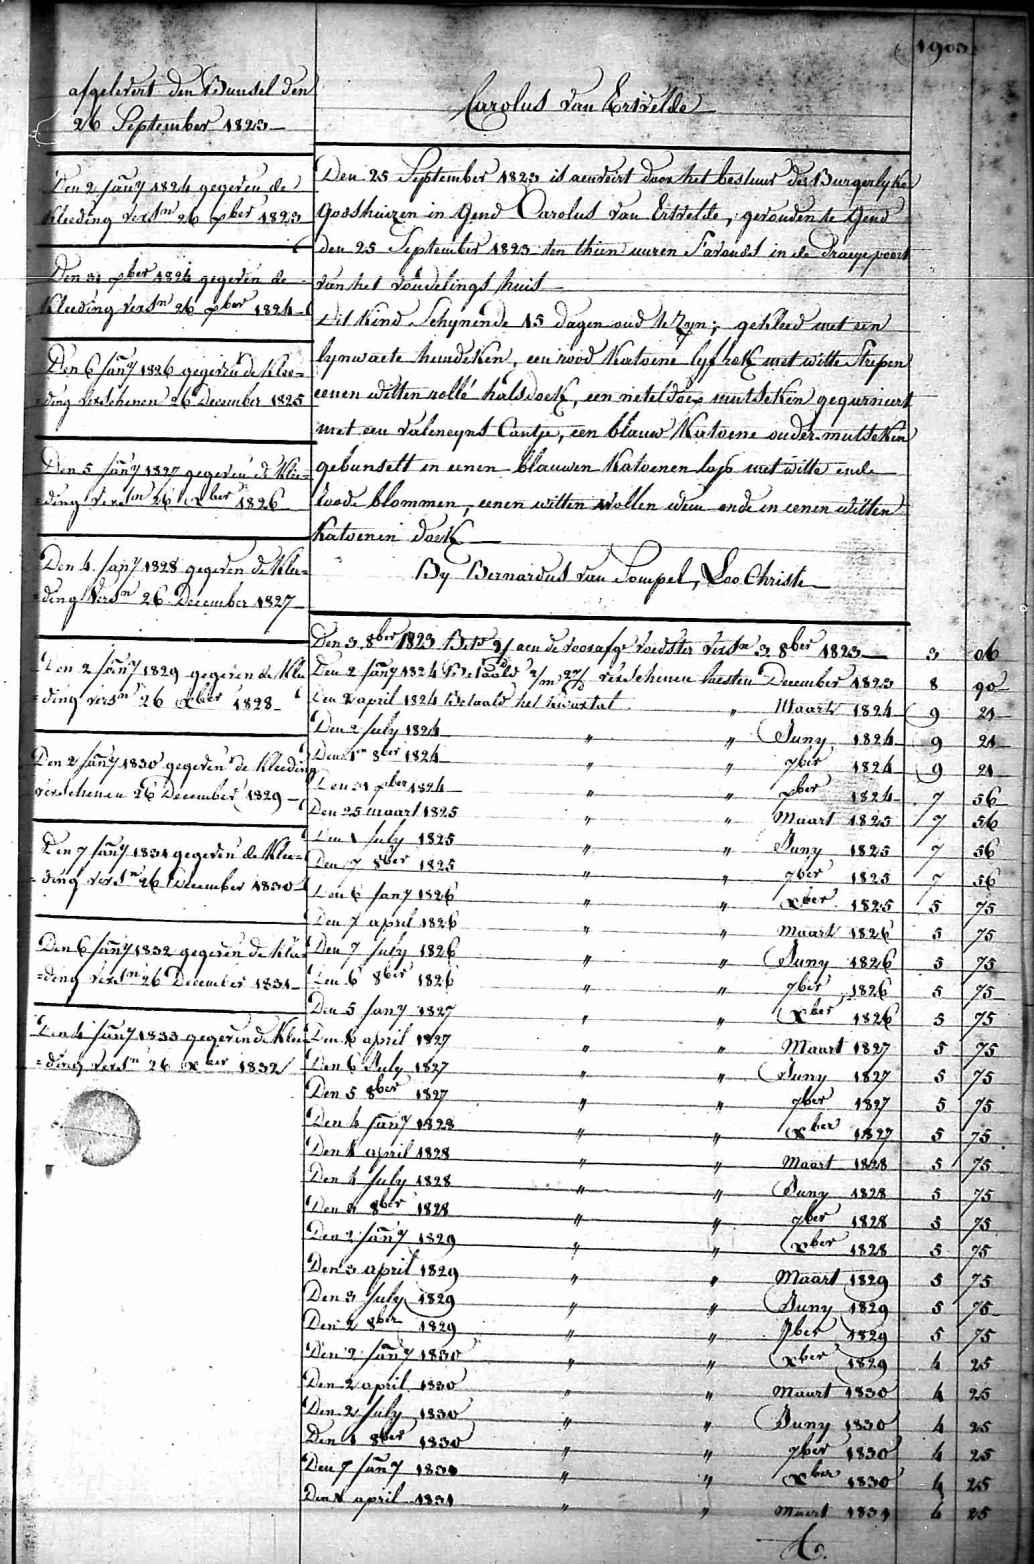 1903
afgelevert den Bunsel den
26 September 1823
Den 2 Jany 1824 gegeven de
Kleeding versn 26 xber 1823
Den 31 xber 1824 gegeven de
Kleeding versn 26 xber 1824
Den 6 Jany 1826 gegeven de Klee=
=ding verschenen 26 December 1825
Den 5 Jany 1827 gegeven de Klee=
=ding versn 26 xber 1826
Den 4 Jany 1828 gegeven de Klee=
=ding versn 26 December 1827
Den 2 Jany 1829 gegeven de Klee
=ding versn 26 xber 1828
Den 2 Jany 1830 gegeven de Kleeding
verschenen 26 December 1829
Den 7 Jany 1831 gegeven de Klee=
=ding versn 26 December 1830
Den 6 Jany 1832 gegeven de Klee
=ding versn 26 December 1831
Den 4 Jany 1833 gegeven de Klee
=ding versn 26 xber 1832
Carolus van Ertvelde
Den 25 September 1823 is aenveirt door het bestuur der Burgerlyke
Godshuizen in Gend Carolus van Ertvelde, gevonden te Gend
den 25 September 1823 ten thien uuren s'avonds in de Draeypoort
van het vondelings huis
Dit Kind Schynende 15 dagen oud te Zyn; gekleed met een
lynwaete hemdeken, een rood Katoene lyfrok met witte Strepen
eenen witten rollé halsdoek, een neteldoex mutseken gegarniert
met een valencyns Cantje, een blauw Katoene onder-mutseken
gebunselt in eenen blauwen Katoenen lap met witte ende
roode blommen, eenen witten Wollen ende in eenen witten
Katoenen doek
By Bernardus van Pompel, Loo Christi
Den 3 8ber 1823 aen de voedster versn 3 8ber 1823 3 06
Den 2 Jany 1824 Betaald verschenen laesten December 1823 8 90
Den 2 april 1824 Betaald het kwartal " Maart 1824 9 21
Den 2 July 1824 " " Juny 1824 9 21
Den 1n 8ber 1824 " " 7ber 1824 9 21
Den 31 xber 1824 " " xber 1824 7 56
Den 25 maart 1825 " " Maart 1825 7 56
Den 1 July 1825 " " Juny 1825 7 56
Den 7 8ber 1825 " " 7ber 1825 7 56
Den 6 Jany 1826 " " xber 1825 5 75
Den 7 april 1826 " " Maart 1826 5 75
Den 7 July 1826 " " Juny 1826 5 75
Den 6 8ber 1826 " " 7ber 1826 5 75
Den 5 Jany 1827 " " xber 1826 5 75
Den 6 april 1827 " " Maart 1827 5 75
Den 6 July 1827 " " Juny 1827 5 75
Den 5 8ber 1827 " " 7ber 1827 5 75
Den 4 Jany 1828 " " xber 1827 5 75
Den 4 april 1828 " " Maart 1828 5 75
Den 4 July 1828 " " Juny 1828 5 75
Den 3 8ber 1828 " " 7ber 1828 5 75
Den 2 Jany 1829 " " xber 1828 5 75
Den 3 april 1829 " " Maart 1829 5 75
Den 3 July 1829 " " Juny 1829 5 75
Den 2 8ber 1829 " " 7ber 1829 5 75
Den 2 Jany 1830 " " xber 1829 4 25
Den 2 april 1830 " " Maart 1830 4 25
Den 2 July 1830 " " Juny 1830 4 25
Den 1 8ber 1830 " " 7ber 1830 4 25
Den 7 Jany 1831 " " xber 1830 4 25
Den 1 april 1831 " " Maart 1831 4 25